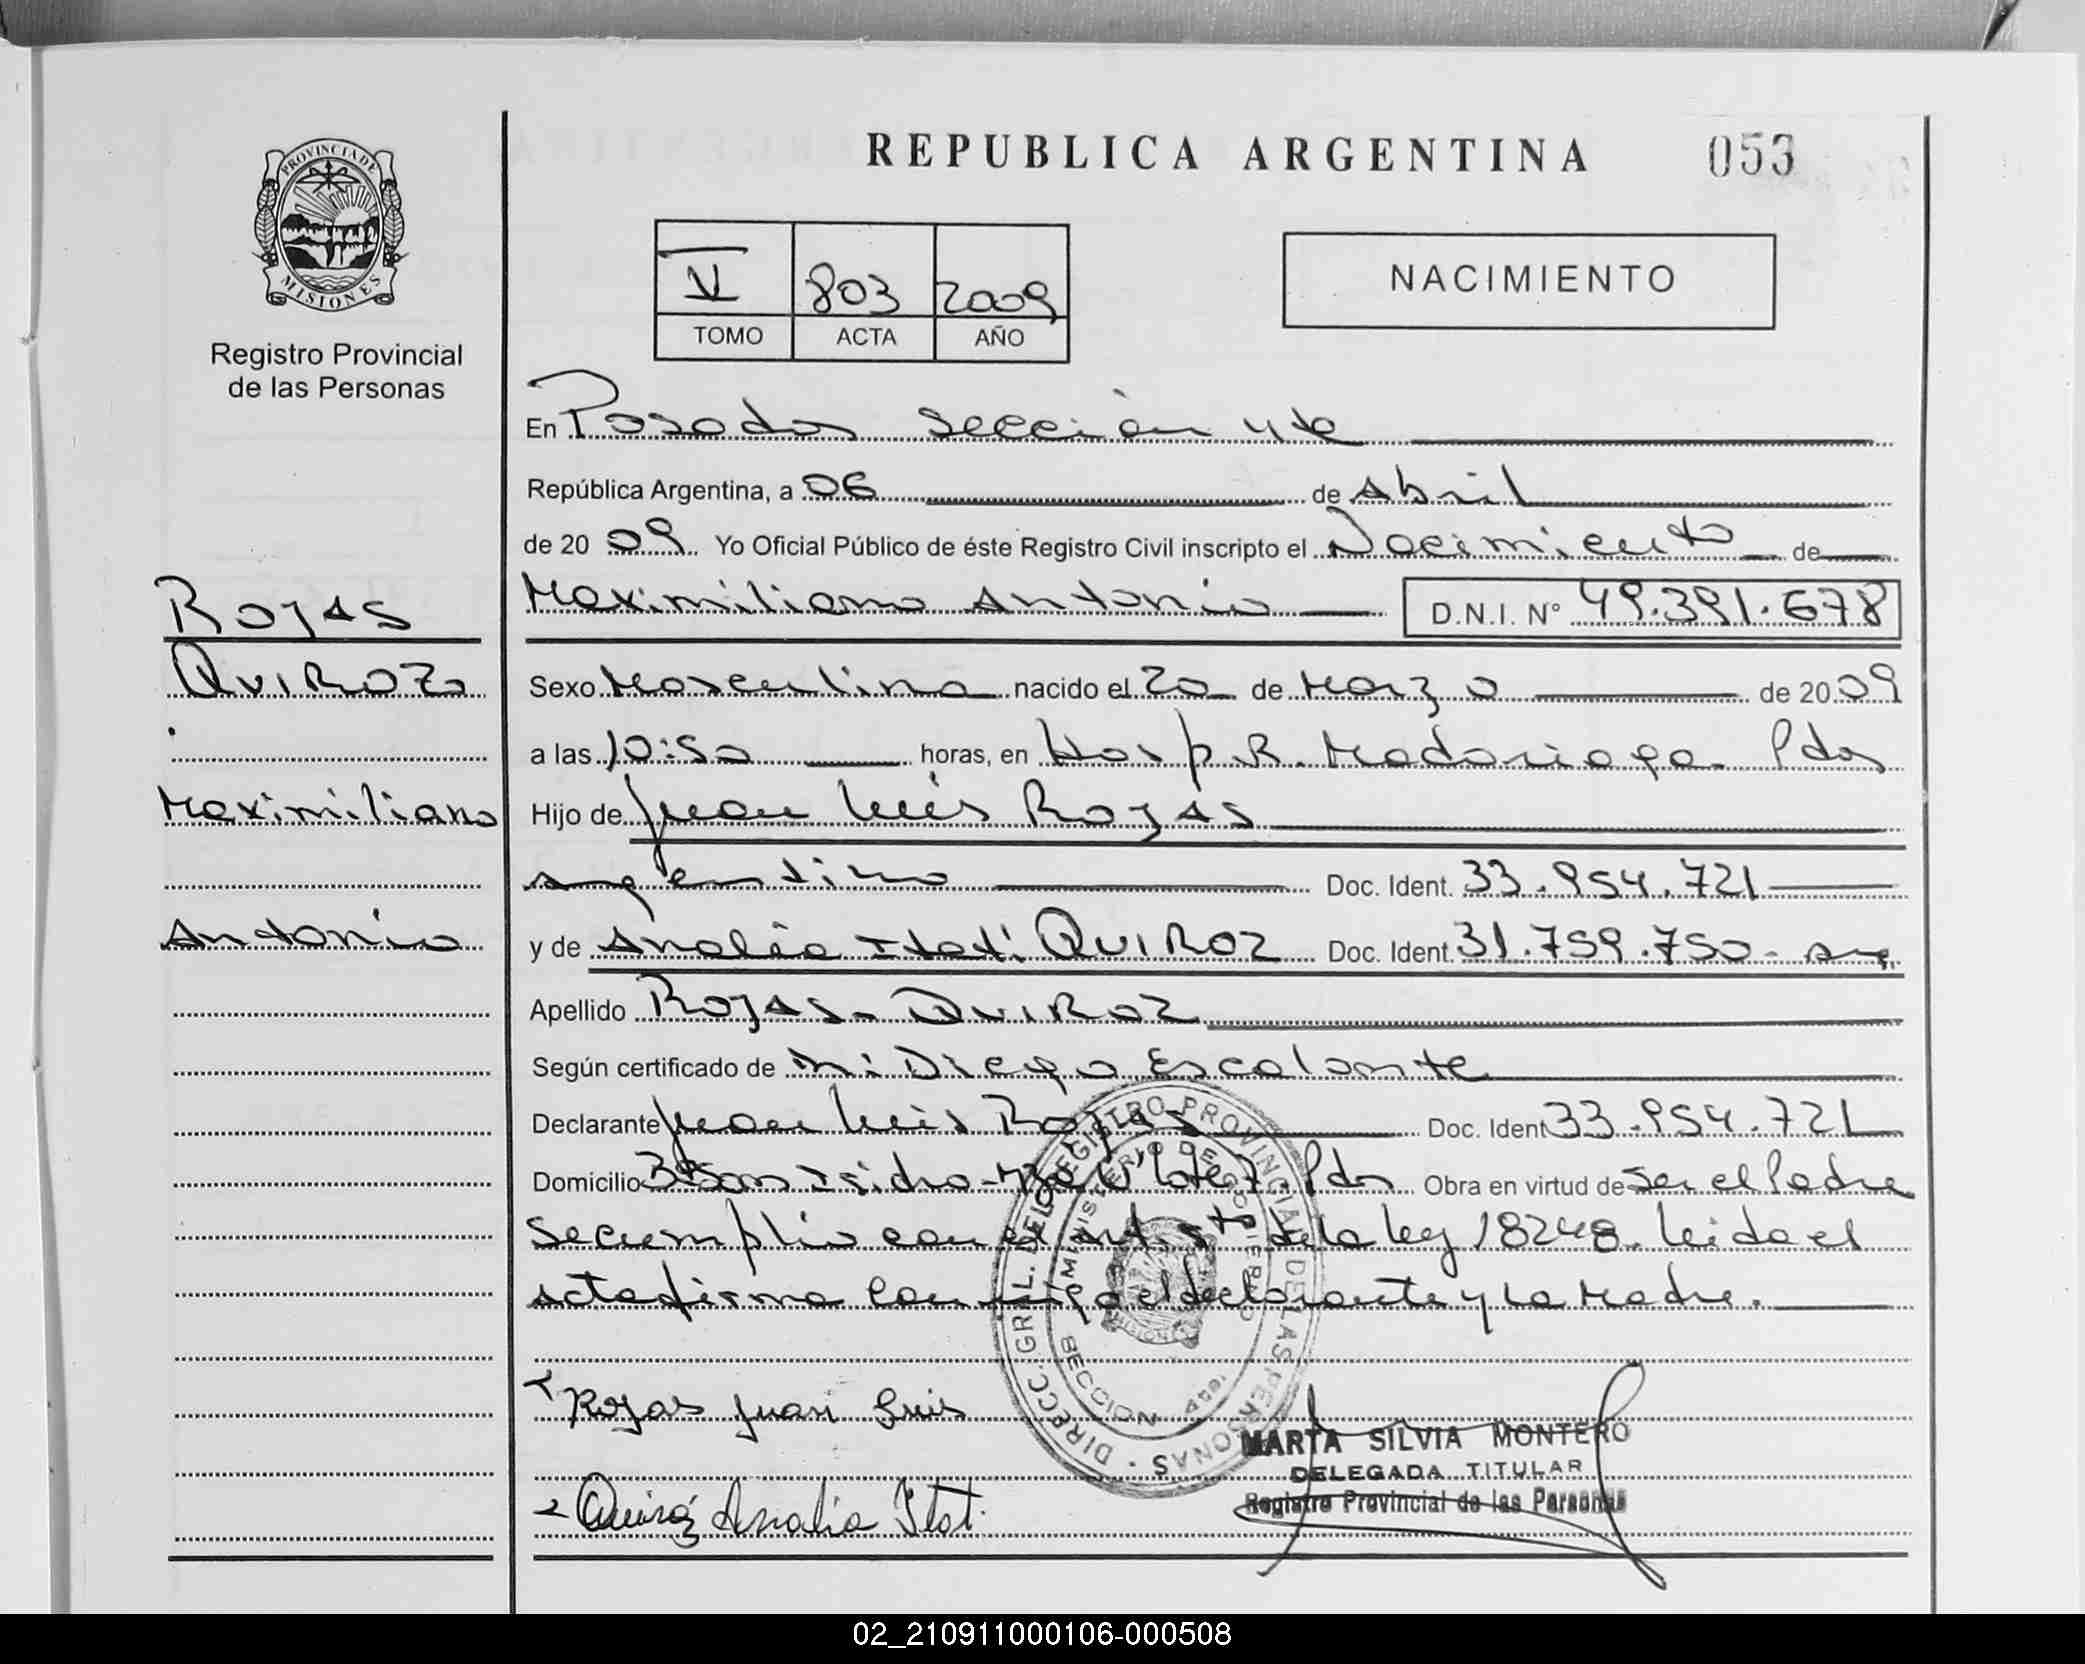 PROVINCIA DE
MISIONES
Registro Provincial
de las Personas
REPUBLICA ARGENTINA 053
V 803 2009
TOMO ACTA AÑO
NACIMIENTO
En Posadas sección 4ta
República Argentina, a 06 de Abril
de 2009 Yo Oficial Público de éste Registro Civil inscripto el Nacimiento de
Maximiliano Antonio D.N.I. N° 49.391.678
ROJAS
QUIROZ
Maximiliano
Antonio
Sexo Masculino nacido el 20 de Marzo de 2009
a las 10:50 horas, en Hosp. R. Madariaga - Pdas
Hijo de Juan Luis ROJAS
argentino Doc. Ident. 33.954.721
y de Analía Itatí QUIROZ Doc. Ident. 31.759.750 - arg.
Apellido ROJAS - QUIROZ
Según certificado de Diego Escalante
Declarante Juan Luis Rojas Doc. Ident 33.954.721
Domicilio San Isidro - lote 7 - Pdas Obra en virtud de ser el Padre
se cumplió con el Art 5to de la ley 18248. leida el
acta firma conmigo el declarante y la Madre.
DIRECC. GRAL. DEL REGISTRO PROVINCIAL DE LAS PERSONAS
MINISTERIO DE GOBIERNO
SECCION 4ta.
Rojas Juan Luis
MARTA SILVIA MONTERO
DELEGADA TITULAR
Registro Provincial de las Personas
Quiróz Analía Itat.
02_210911000106-000508